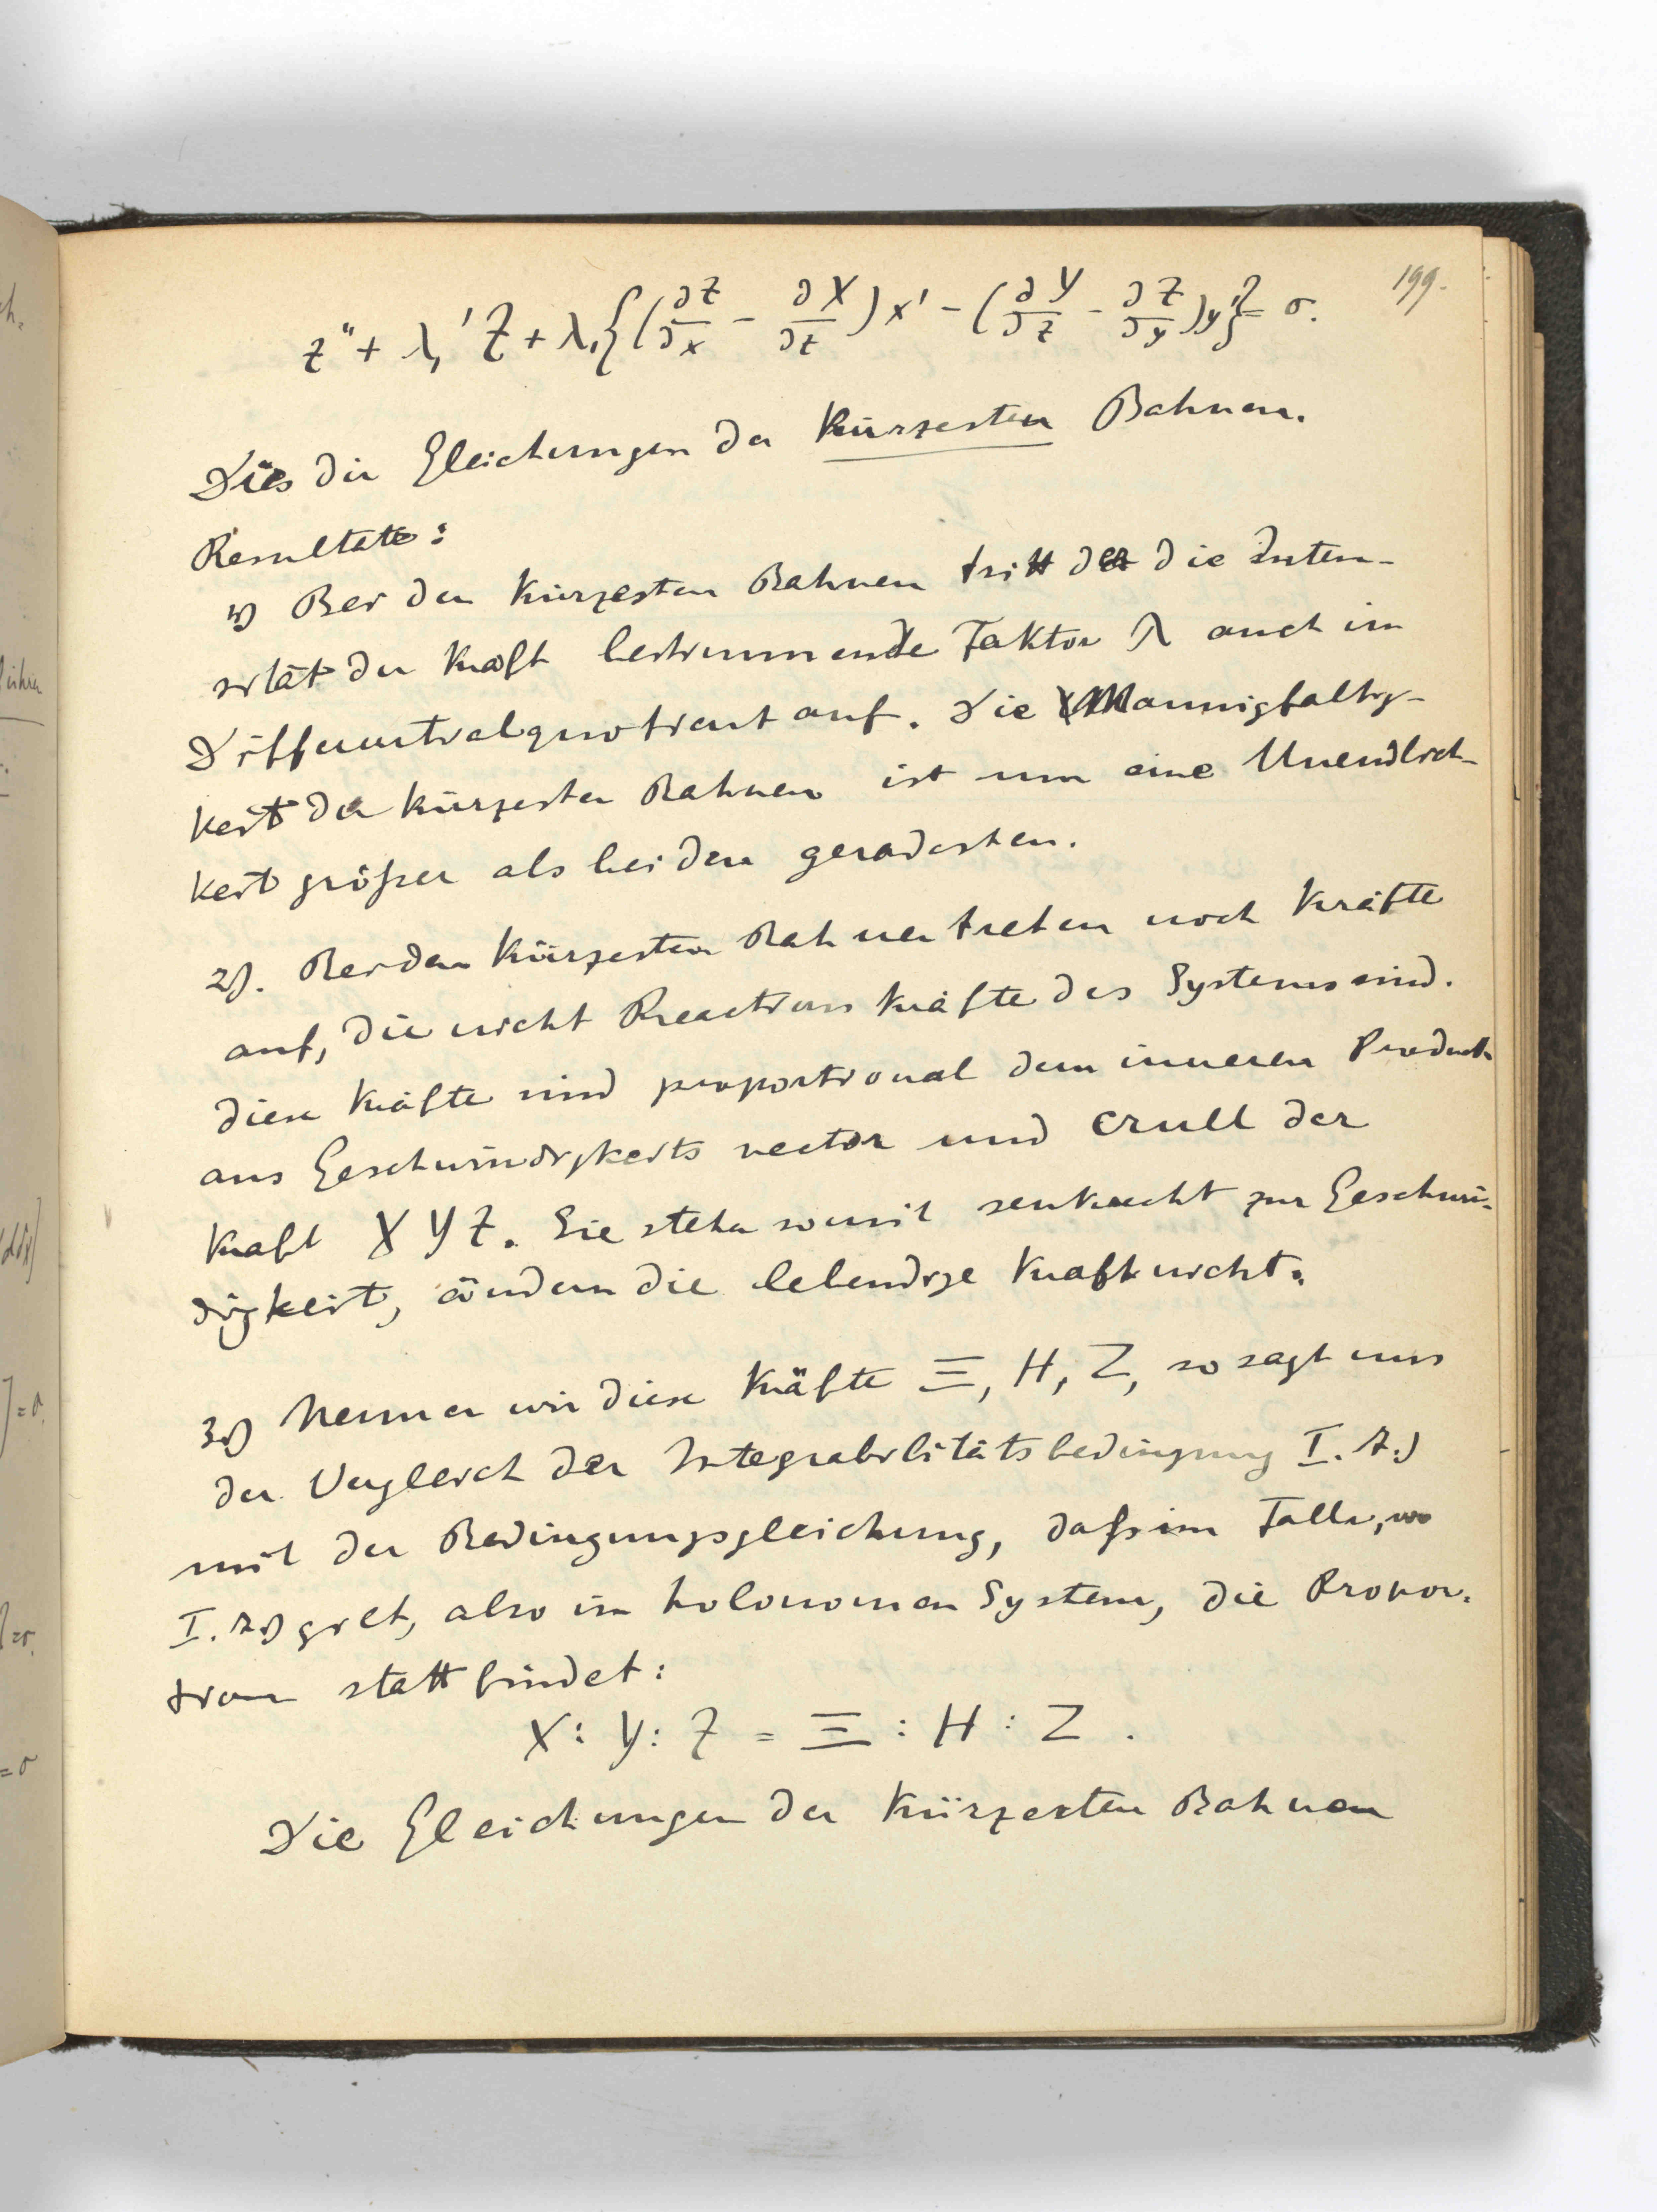 199.
z'' + λ₁' Z + λ₁{(∂Z/∂x - ∂X/∂z)x' - (∂Y/∂z - ∂Z/∂y)y'} = 0.
Dies die Gleichungen der kürzesten Bahnen.
Resultate:
1) Bei den kürzesten Bahnen tritt der die Inten-
sität der Kraft bestimmende Faktor λ auch im
Differentialquotient auf. Die Mannigfaltig-
keit der kürzesten Bahnen ist um eine Unendlich-
keit größer als bei den geradesten.
2). Bei den kürzesten Bahnen treten noch Kräfte
auf, die nicht Reactionskräfte des Systems sind.
diese Kräfte sind proportional dem inneren Product
aus Geschwindigkeitsvector und Crull der
Kraft X Y Z. Sie stehn somit senkrecht zur Geschwin-
digkeit, ändern die lebendige Kraft nicht.
3) Nennen wir diese Kräfte Ξ, H, Z, so sagt uns
der Vergleich der Integrabilitätsbedingung I. 7.)
mit der Bedingungsgleichung, daß im Falle, wo
I. 7.) gilt, also im holonomen System, die Propor-
tion statt findet:
X : Y : Z = Ξ : H : Z .
Die Gleichungen der kürzesten Bahnen
ch.
=0.
=0.
=0